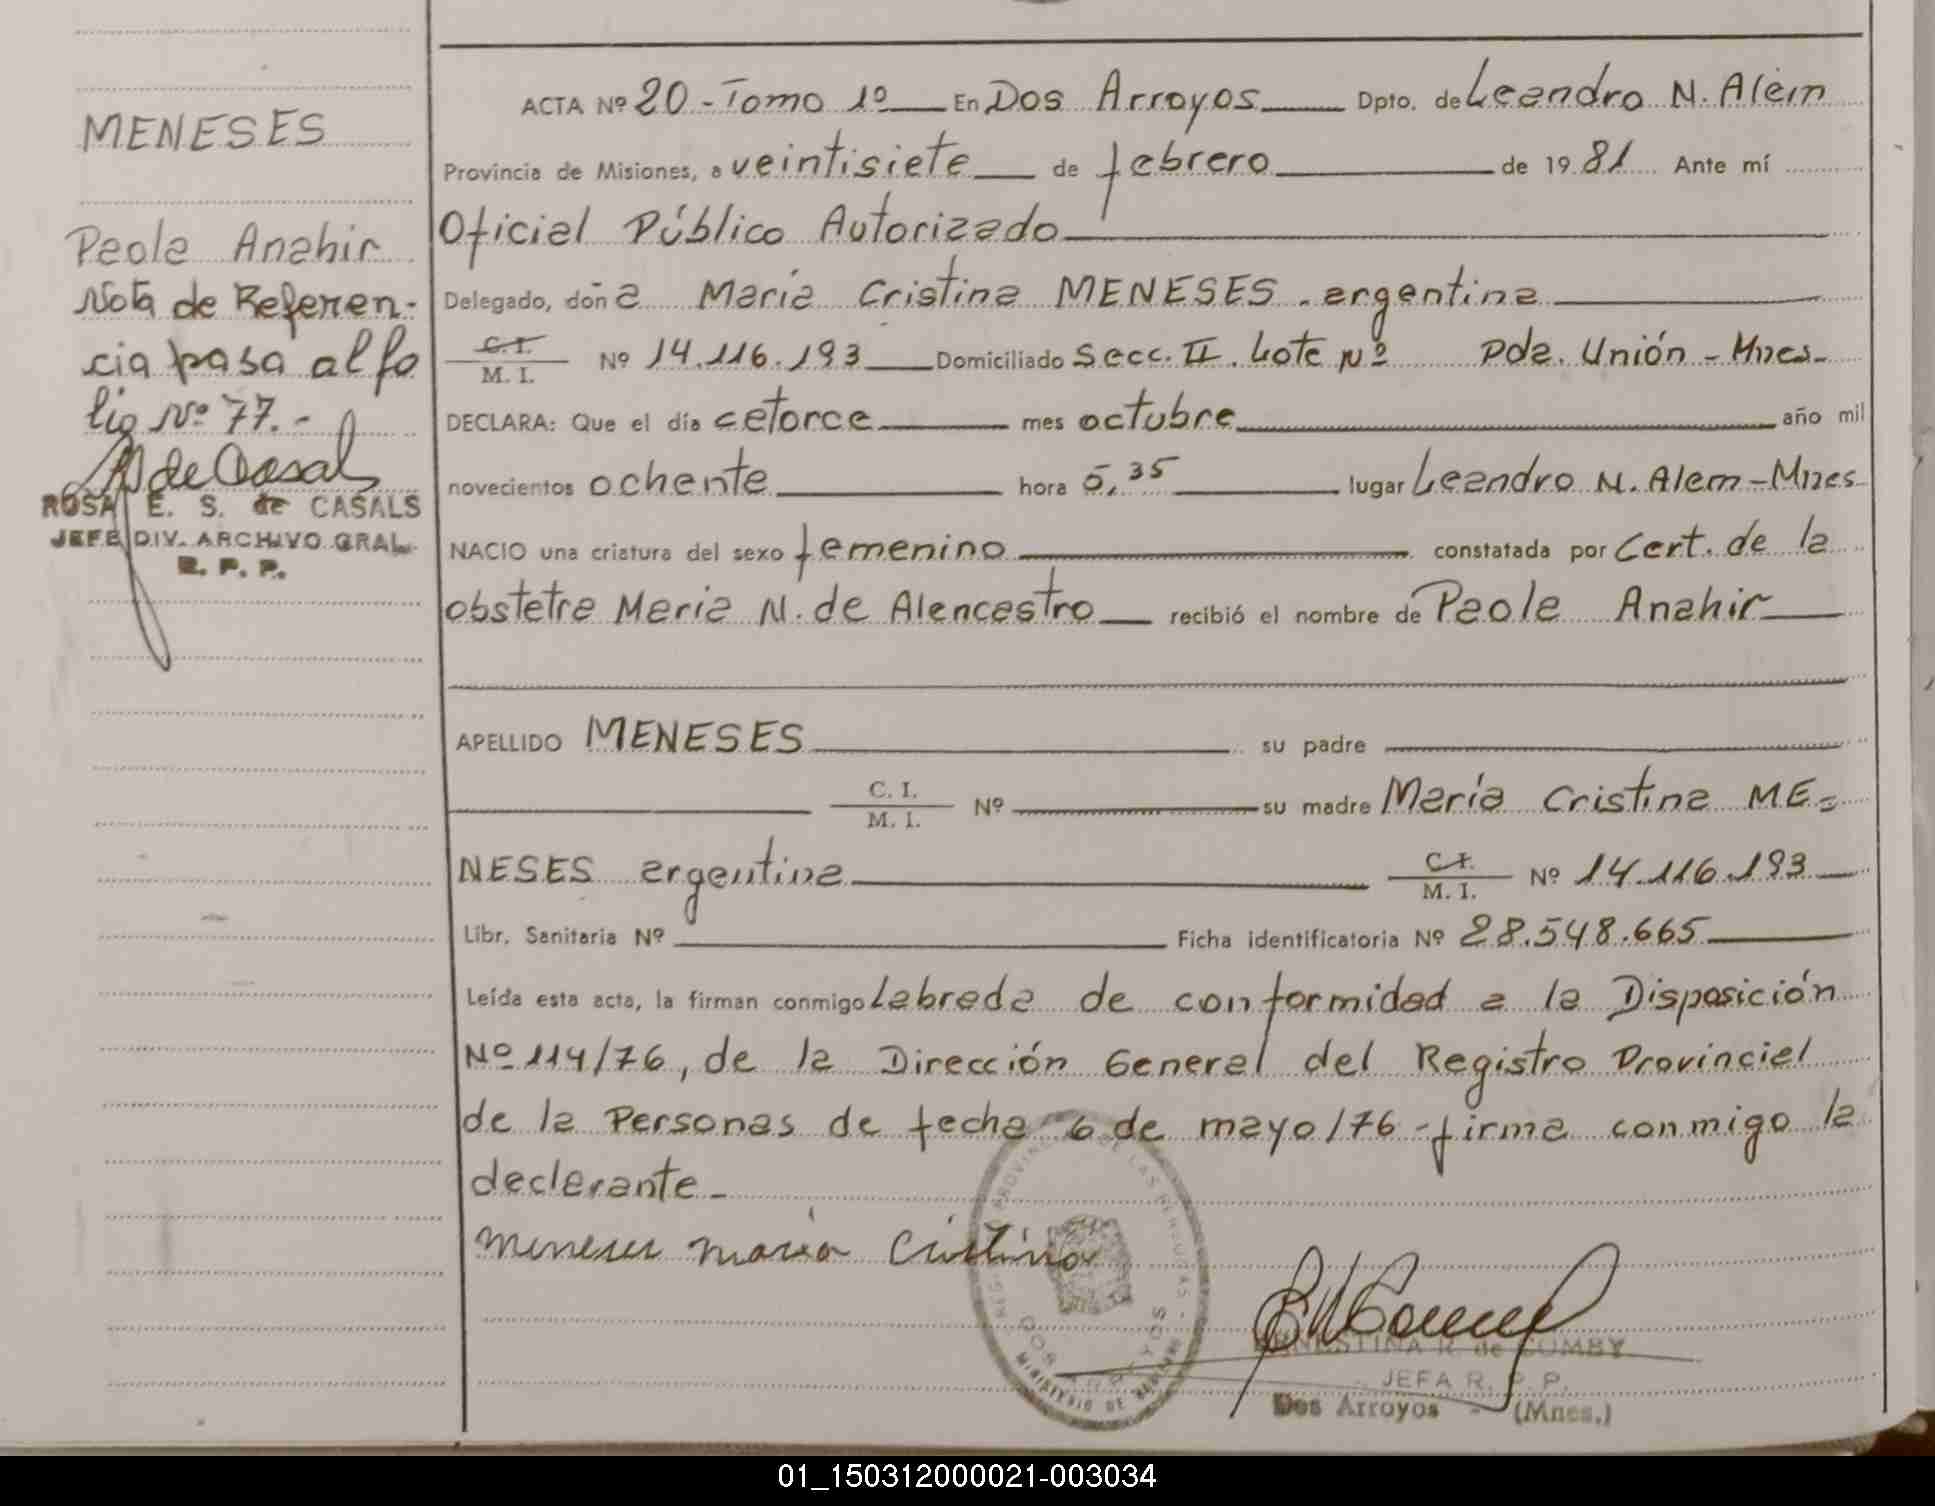 MENESES
Paola Anahir
Nota de Referen-
cia pasa al fo
lio Nº 77.-
de Casal
ROSA E. S. de CASALS
JEFE DIV. ARCHIVO GRAL.
R. P. P.
ACTA Nº 20 - Tomo 1º En Dos Arroyos Dpto. de Leandro N. Alem
Provincia de Misiones, a veintisiete de febrero de 1981 Ante mí
Oficial Público Autorizado
Delegado, doña María Cristina MENESES. argentina
C.I. M. I. Nº 14.116.193 Domiciliado Secc. II. Lote Nº Pda. Unión - Mnes-
DECLARA: Que el día catorce mes octubre año mil
novecientos ochenta hora 5,35 lugar Leandro N. Alem - Mnes
NACIO una criatura del sexo femenino constatada por Cert. de la
obstetra Maria N. de Alencastro recibió el nombre de Paola Anahir
APELLIDO MENESES su padre
C. I. M. I. Nº su madre María Cristina ME=
NESES argentina C.I. M. I. Nº 14.116.193
Libr. Sanitaria Nº Ficha identificatoria Nº 28.548.665
Leída esta acta, la firman conmigo Labrada de conformidad a la Disposición
Nº 114/76, de la Dirección General del Registro Provincial
de la Personas de fecha 6 de mayo/76 - firma conmigo la
declarante -
Meneses maria Cristina
DOS ARROYOS
MINISTERIO DE GOBIERNO
ERNESTINA R. de COMBY
JEFA R. P. P.
Dos Arroyos - (Mnes.)
01_150312000021-003034